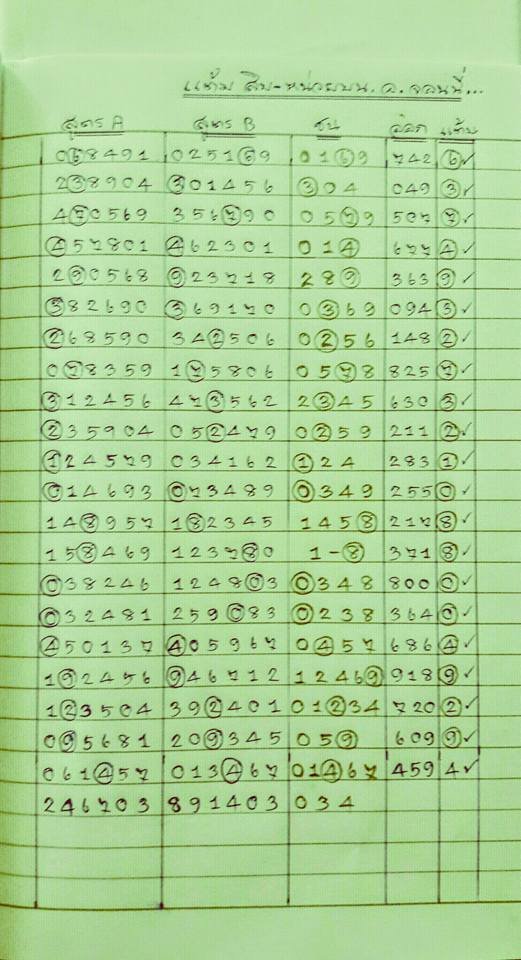 แต้ม สิบ-หน่วยบน. อ. จอนนี่...
สูตร A สูตร B ชน ออก แต้ม
068491 025169 0169 742 6✓
238904 301456 304 049 3✓
470569 356790 0579 507 7✓
457801 462301 014 677 4✓
290568 923718 289 363 9✓
382690 369170 0369 094 3✓
268590 342506 0256 148 2✓
078359 175806 0578 825 7✓
312456 473562 2345 630 3✓
235904 052479 0259 211 2✓
124579 034162 124 283 1✓
014693 073489 0349 255 0✓
148957 182345 1458 217 8✓
158469 123780 1-8 371 8✓
038246 124803 0348 800 0✓
032481 259083 0238 364 0✓
450137 405967 0457 686 4✓
192456 946712 12469 918 9✓
123504 392401 01234 720 2✓
095681 209345 059 609 9✓
061457 013467 01467 459 4✓
246703 891403 034